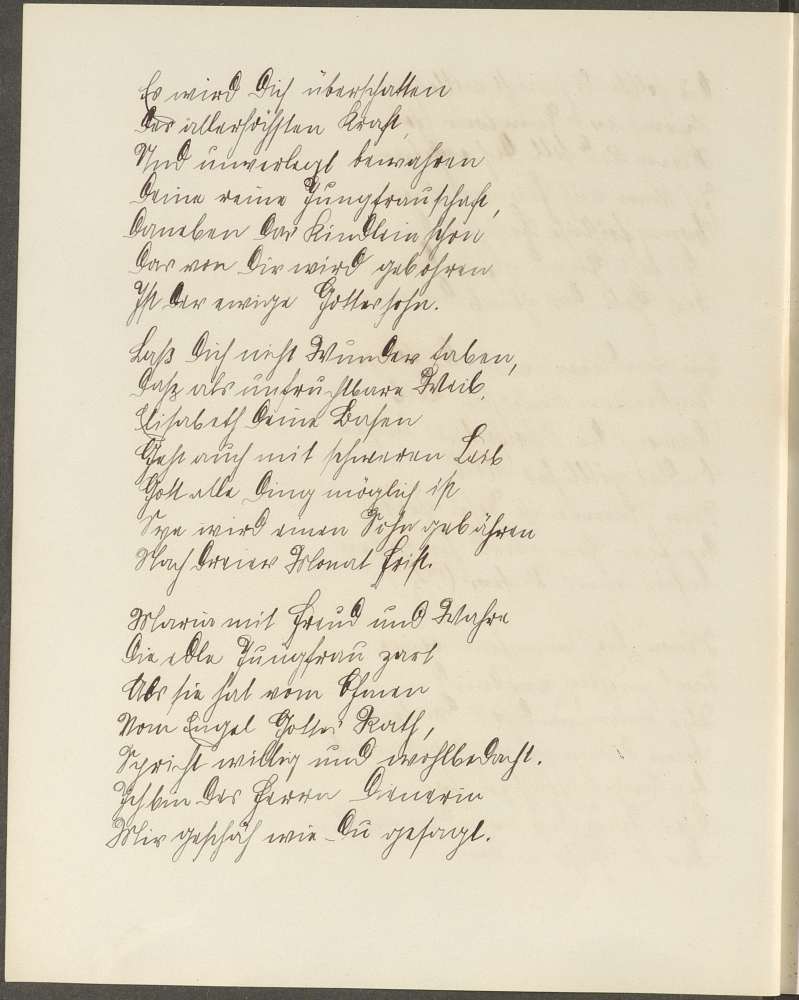 Es wird Dich überschatten
Des allerhöchsten Kraft,
Und unverlegt bewahren
Deine reine Jungfrauschaft,
Daneben das Kindlein schon
Das von Dir wird gebohren
Ist der ewige Gottessohn.
Laß Dich nicht Wunder haben,
Dasz als unfruchtbare Weib,
Elisabeth Deine Basen
Geht auch mit schweren Leib
Gott alle Ding möglich ist
Sye wird einen Sohn gebähren
Nach dreier Monat Frist.
Maria mit Freud und Wahre
Die edle Jungfrau zart
Als sie hat vom
Vom Engel Gottes Rath,
Spricht willig und wohlbedacht.
Ich bin des Herrn Denerin
Mir geschäh wie Du gesagt.